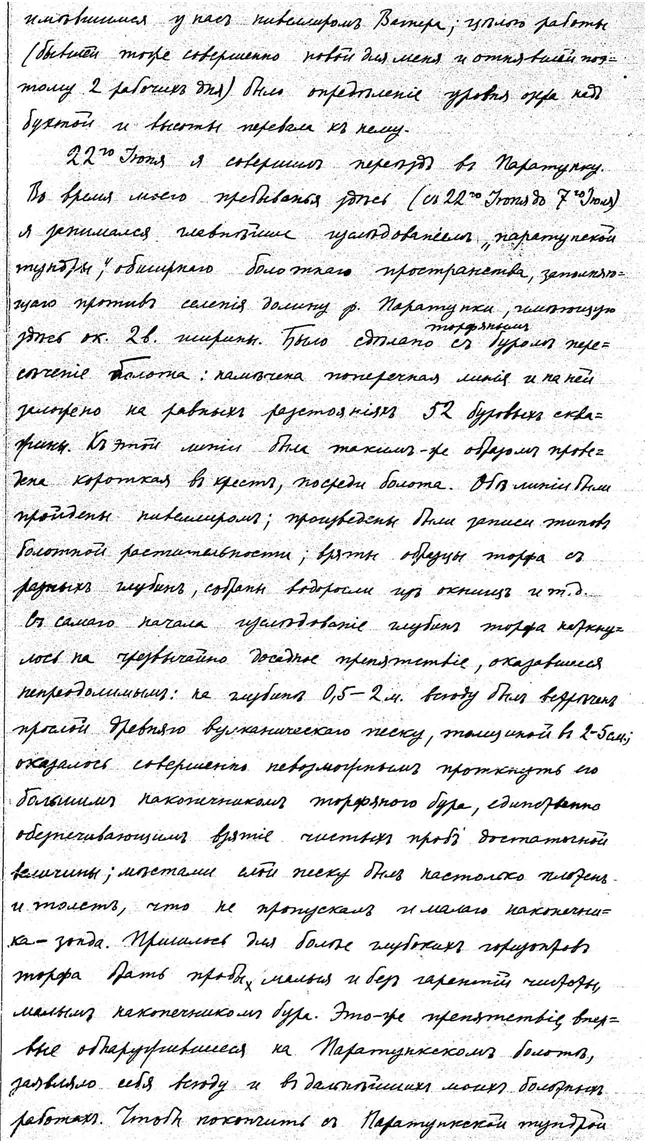 имѣвшимся у насъ нивелиромъ Вагнера; цѣлью работы
(бывшей тоже совершенно новой для меня и отнявшей поэ=
тому 2 рабочихъ дня) было опредѣленіе уровня озера надъ
бухтой и высоты перевала къ нему.
22го Іюня я совершилъ переѣздъ въ Паратунку.
Во время моего пребыванья здѣсь (съ 22го Іюня до 7го Іюля)
я занимался главнѣйше изслѣдованіемъ „паратунской
тундры“, обширнаго болотнаго пространства, заполняю=
щаго противъ селенія долину р. Паратунки, имѣющую
здѣсь ок. 2 в. ширины. Было сдѣлано съ торфянымъ буромъ пере=
сѣченіе болота: намѣчена поперечная линія и на ней
заложено на равныхъ разстояніяхъ 52 буровыхъ сква=
жины. Къ этой линіи была такимъ-же образомъ прове=
дена короткая въ крестъ, посреди болота. Обѣ линіи были
пройдены нивелиромъ; произведены были записи типовъ
болотной растительности; взяты образцы торфа съ
разныхъ глубинъ, собраны водоросли изъ окницъ и т.д.
Съ самаго начала изслѣдованіе глубинъ торфа наткну=
лось на чрезвычайно досадное препятствіе, оказавшееся
непреодолимымъ: на глубинѣ 0,5–2 м. всюду былъ встрѣченъ
прослой древняго вулканическаго песку, толщиной въ 2-5 см.;
оказалось совершенно невозможнымъ проткнуть его
большимъ наконечникомъ торфяного бура, единственно
обезпечивающимъ взятіе чистыхъ пробъ достаточной
величины; мѣстами слой песку былъ настолько плотенъ
и толстъ, что не пропускалъ и малаго наконечни=
ка-зонда. Пришлось для болѣе глубокихъ горизонтовъ
торфа брать пробы малыя и безъ гарантій чистоты,
малымъ наконечникомъ бура. Это-же препятствіе, впер=
вые обнаружившееся на Паратункскомъ болотѣ,
заявляло себя всюду и въ дальнѣйшихъ моихъ болотныхъ
работахъ. Чтобы покончить съ Паратункской тундрой